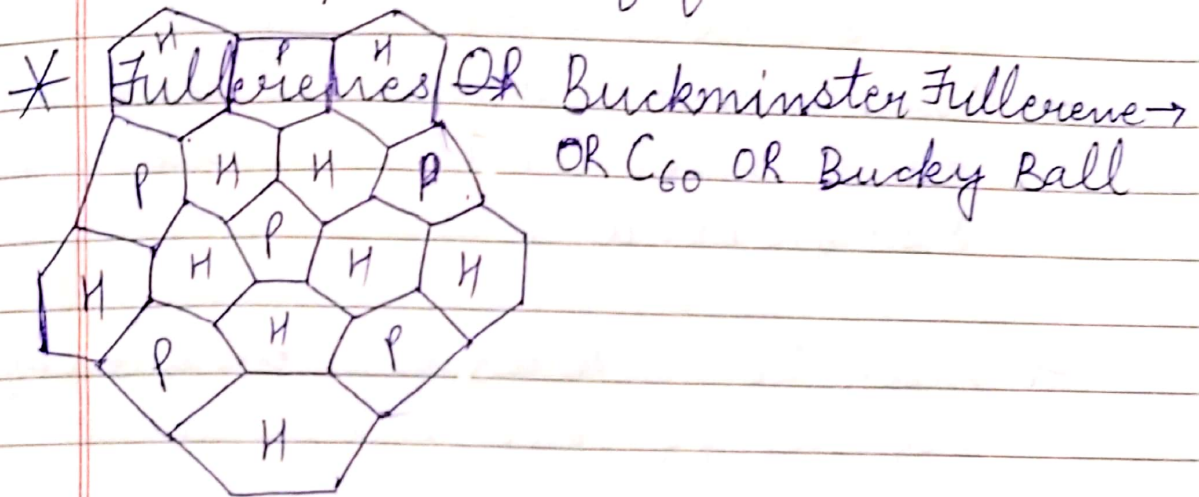 H P H
* Fullerenes OR Buckminster Fullerene →
OR C60 OR Bucky Ball
P H H P
P
H H H H
H
P P
H